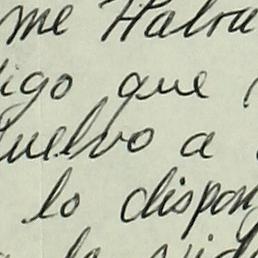 me Habra
igo que
uelvo a
lo dispon
la vida